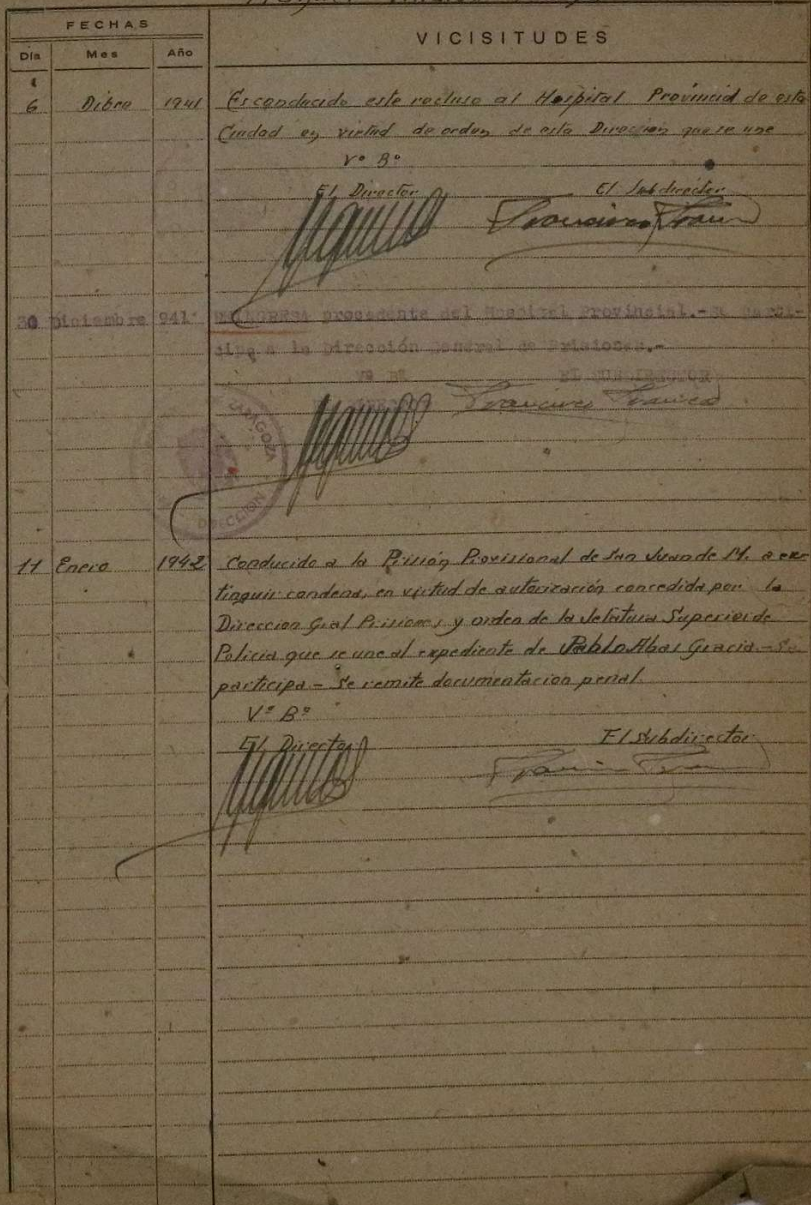 FECHAS
VICISITUDES
Día Mes Año
6 Dibre 1941 Es conducido este recluso al Hospital Provincial de esta
Ciudad en virtud de orden de esta Dirección que se une
Vº Bº
El Director El Subdirector
30 Diciembre 941 REINGRESA procedente del Hospital Provincial.- Se parti-
cipa a la Dirección General de Prisiones.-
Vº Bº EL SUBDIRECTOR
ZARAGOZA
DIRECCION
11 Enero 1942 Conducido a la Prisión Provisional de San Juan de M. a ex
tinguir condena, en virtud de autorización concedida por la
Direccion Gral Prisiones y orden de la Jefatura Superior de
Policia que se une al expediente de Pablo Abas Gracia - Se
participa - Se remite documentacion penal
Vº Bº
El Director El Subdirector